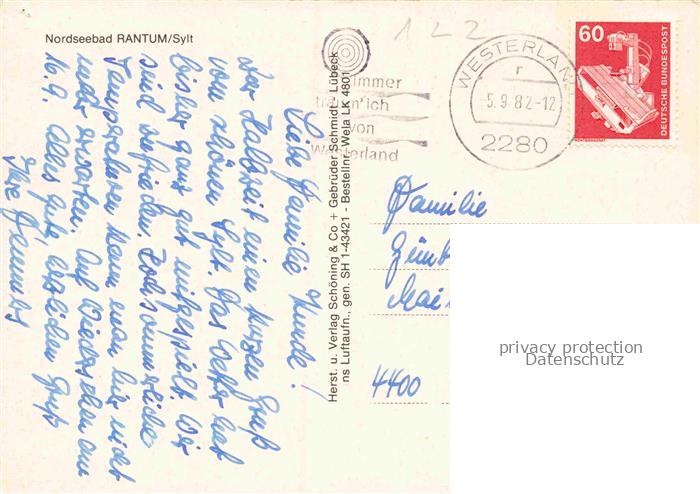 Nordseebad RANTUM/Sylt
Liebe Familie Hunde!
Zur Halbzeit einen kurzen Gruß
vom schönen Sylt. Das Wetter hat
bisher ganz gut mitgespielt. Wir
sind zufrieden. Hochsommerliche
Temperaturen kann man hier nicht
mehr erwarten. Auf Wiedersehen am
16.9. Alles Gute, herzlichen Gruß
Ihre
Herst. u. Verlag Schöning & Co + Gebrüder Schmidt, Lübeck
ns Luftaufn., gen. SH 1-43421 - Bestellnr. Wela LK 4801
122
Immer
träum' ich
von
Westerland
WESTERLAND
r
-5.9.82-12
2280
60
DEUTSCHE BUNDESPOST
Familie
4400
privacy protection
Datenschutz